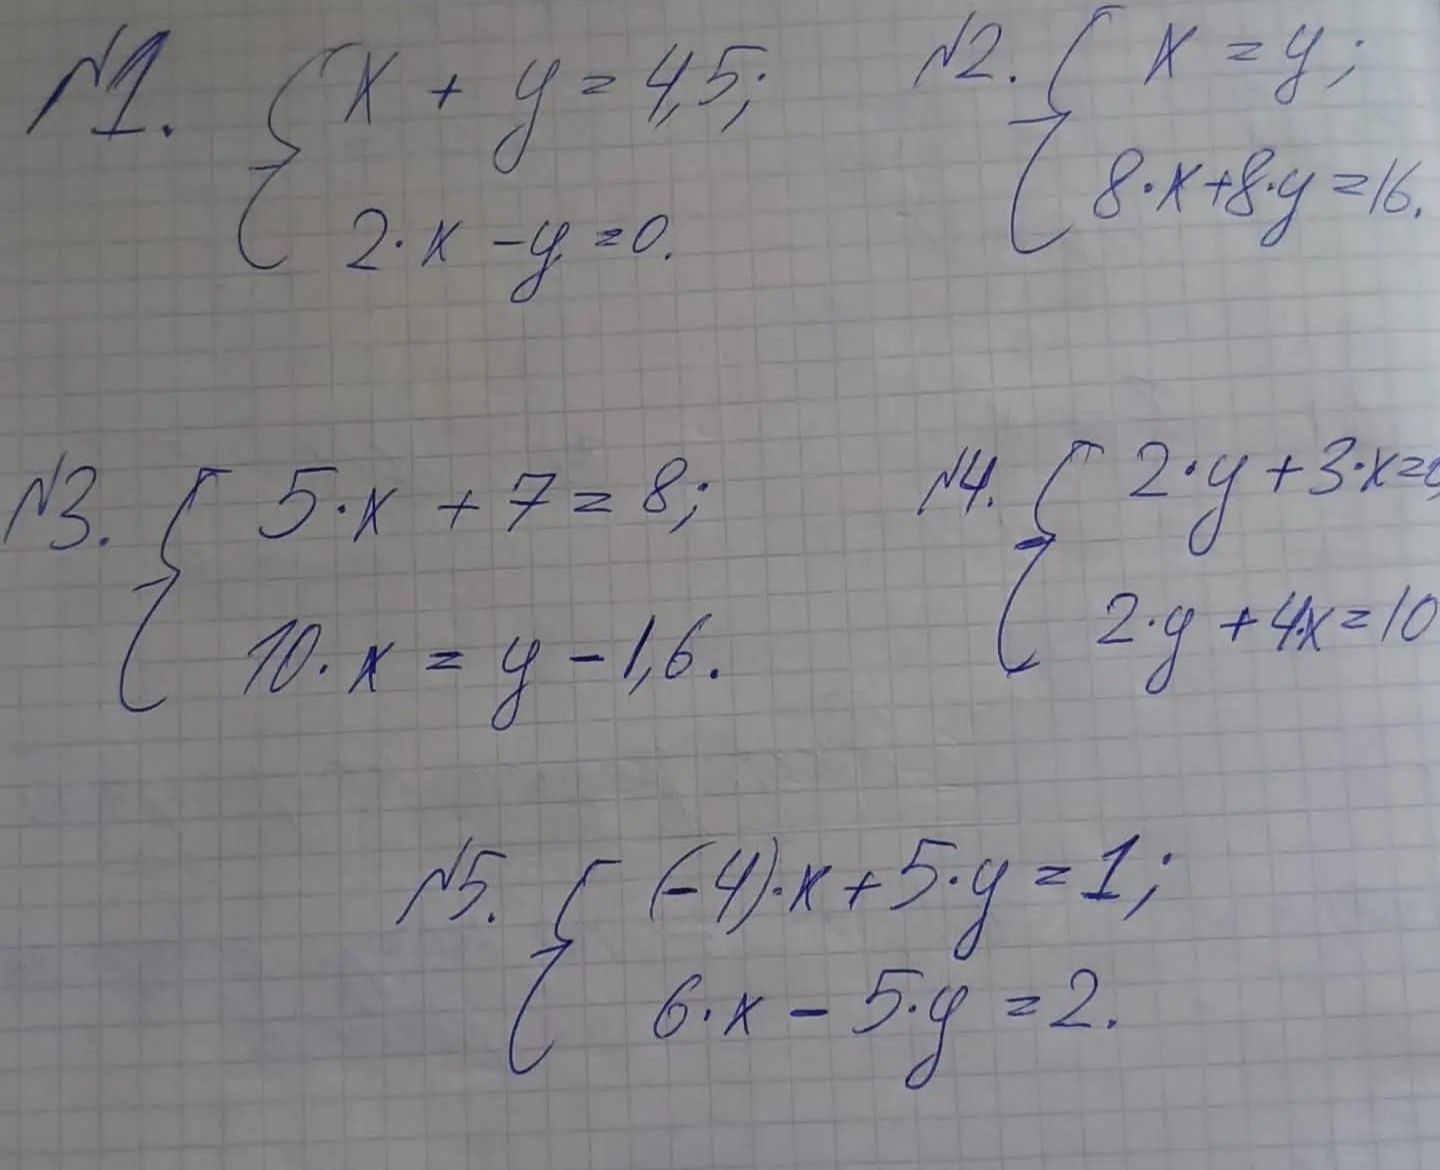 №1. { x + y = 4,5;
2·x - y = 0.
№2. { x = y;
8·x + 8·y = 16.
№3. { 5·x + 7 = 8;
10·x = y - 1,6.
№4. { 2·y + 3·x =
2·y + 4·x = 10
№5. { (-4)·x + 5·y = 1;
6·x - 5·y = 2.